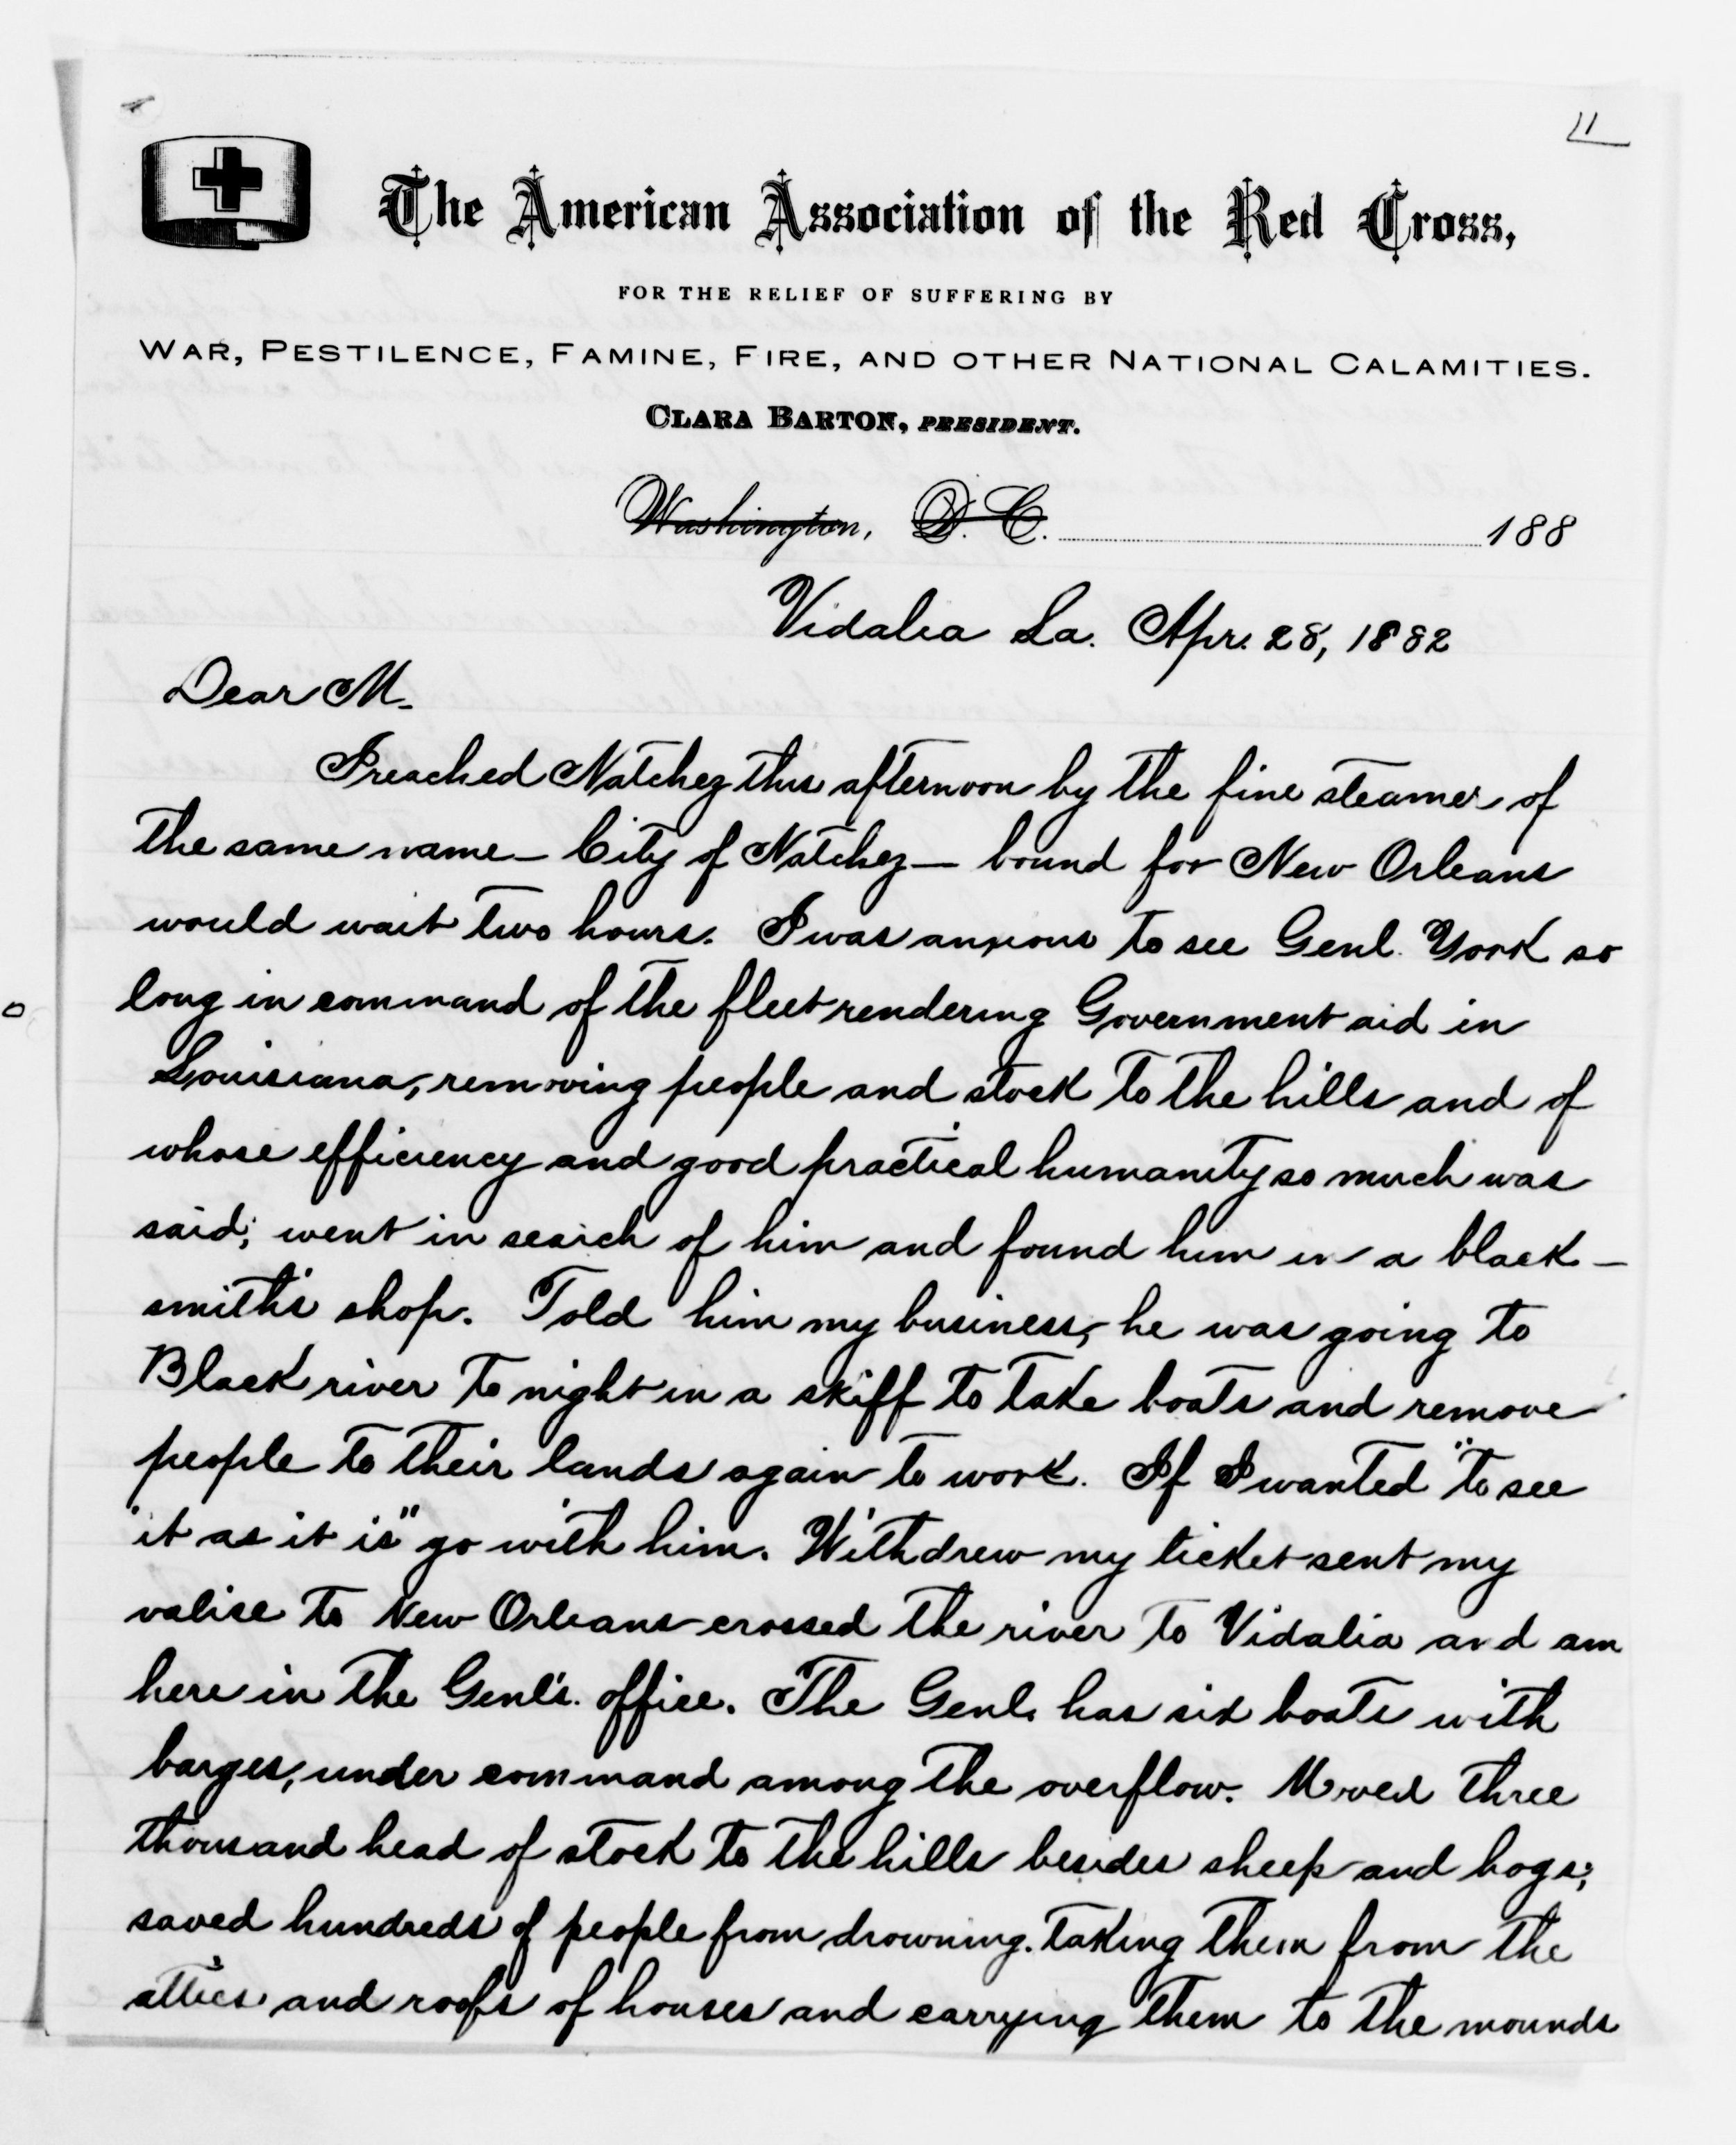 11
The American Association of the Red Cross,
FOR THE RELIEF OF SUFFERING BY
WAR, PESTILENCE, FAMINE, FIRE, AND OTHER NATIONAL CALAMITIES.
CLARA BARTON, PRESIDENT.
Washington, D. C. 188
Vidalia La. Apr. 28, 1882
Dear M.
I reached Natchez this afternoon by the fine steamer of
the same name — City of Natchez — bound for New Orleans
would wait two hours. I was anxious to see Genl. York so
long in command of the fleet rendering Government aid in
Louisiana, removing people and stock to the hills and of
whose efficiency and good practical humanity so much was
said; went in search of him and found him in a black-
smith's shop. Told him my business, he was going to
Black river to night in a skiff to take boats and remove
people to their lands again to work. If I wanted "to see
"it as it is" go with him. Withdrew my ticket sent my
valise to New Orleans crossed the river to Vidalia and am
here in the Genl's. office. The Genl. has six boats with
barges, under command among the overflow. Moved three
thousand head of stock to the hills besides sheep and hogs;
saved hundreds of people from drowning. taking them from the
attics and roofs of houses and carrying them to the mounds